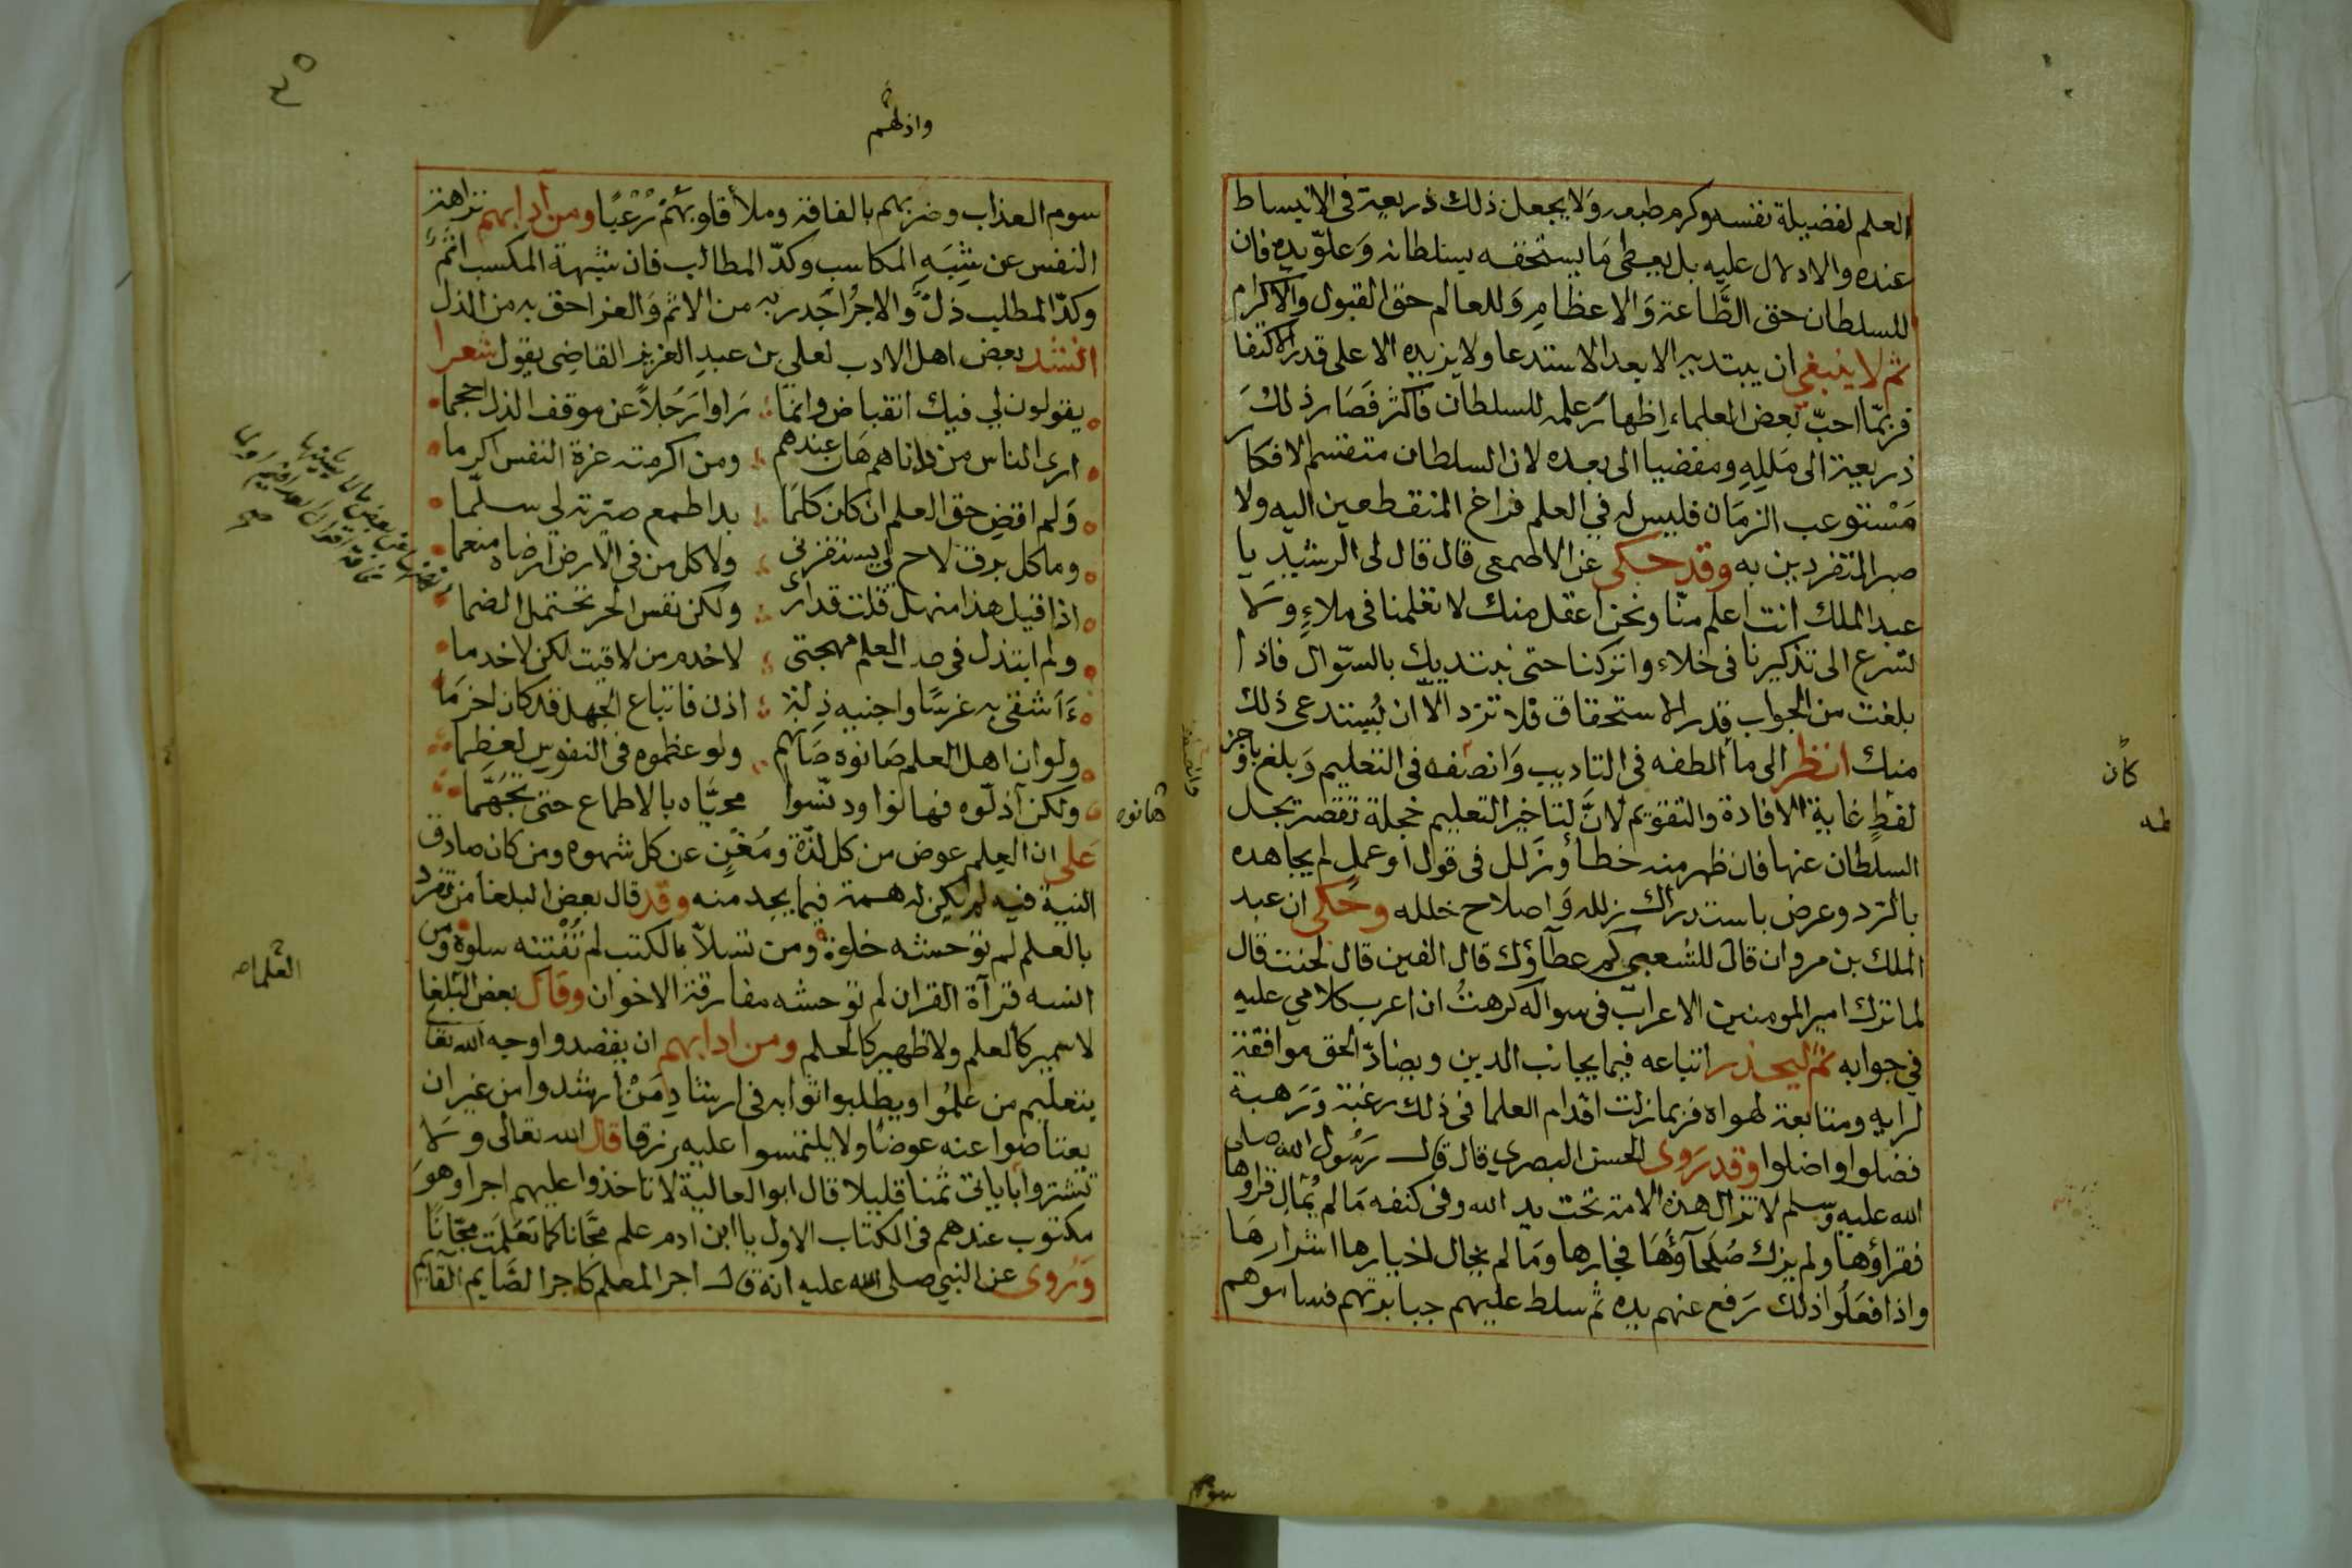 العلم لفضيلة نفسه وكرم طبعه ولا يجعل ذلك ذريعة في الانبساط
عنده والادلال عليه بل يعطي ما يستحقه بسلطانه وعلو يده فان
للسلطان حق الطاعة والاعظام وللعالم حق القبول والاكرام
ثم لا ينبغي ان يبتديه الا بعد الاستدعا ولا يزيده الا على قدر الاكتفا
فربما احب بعض العلماء اظهار علمه للسلطان فاكثر فصار ذلك
ذريعة الى ملله ومفضيا الى بعده لان السلطان متقسم الافكار
مستوعب الزمان فليس له في العلم فراغ المنقطعين اليه ولا
صبر المنفردين به وقد حكى عن الاصمعي قال قال لى الرشيد يا
عبد الملك انت اعلم منا ونحن اعقل منك لا تعلمنا في ملاء ولا
تسرع الى تذكيرنا في خلاء واتركنا حتى نبتديك بالسوال فاذا
بلغت من الجواب قدر الاستحقاق فلا تزد الا ان يستدعى ذلك
منك انظر الى ما الطفه في التاديب وانصفه في التعليم وبلغ باوجز
لفظ غاية الافادة والتقويم لان لتاخير التعليم خجلة تقصر بجل
السلطان عنها فان ظهر منه خطأ وزلل في قول او عمل لم يجاهده
بالرد وعرض باستدراك زلله واصلاح خلله وحكى ان عبد
الملك بن مروان قال للشعبي كم عطآؤك قال الفين قال لحنت قال
لما ترك امير المومنين الاعراب في سواله كرهت ان اعرب كلامي عليه
في جوابه ثم ليحذر اتباعه فيما يجانب الدين ويضاد الحق موافقة
لرايه ومتابعة لهواه فربما زلت اقدام العلما في ذلك رغبة ورهبة
فضلوا واضلوا وقد روى الحسن البصري قال قال رسول الله صلى
الله عليه وسلم لا تزال هذه الامة تحت يد الله وفي كنفه ما لم يمال قراوها
فقراؤها ولم يزك صلحآؤها فجارها وما لم يجال اخيارها اشرارها
واذا فعلوا ذلك رفع عنهم يده ثم سلط عليهم جبابرتهم فساموهم
كان
سوم
واذلهم
سوم العذاب وضربهم بالفاقة وملأ قلوبهم رعبا ومن ادابهم نزاهة
النفس عن شبه المكاسب وكد المطالب فان شبهة المكسب اثم
وكد المطلب ذل والاجر اجدر به من الاثم والعز احق به من الذل
انشد بعض اهل الادب لعلي بن عبد العزيز القاضي يقول شعرا
يقولون لي فيك انقباض وانما راوا رجلا عن موقف الذل احجما
ارى الناس من داناهم هان عندهم ومن اكرمته عزة النفس اكرما
ولم اقض حق العلم ان كان كلما بدا طمع صيرته لي سلما
وما كل برق لاح لي يستفزني ولا كل من في الارض ارضاه منعما
اذا قيل هذا منهل قلت قد ارى ولكن نفس الحر تحتمل الضما
ولم ابتذل في العلم مهجتي لاخدم من لاقيت لكن لاخدما
ءاشقى به غرسا واجنيه ذلة اذن فاتباع الجهل قد كان احزما
ولو ان اهل العلم صانوه صانهم ولو عظموه في النفوس لعظما
ولكن اذلوه فهانوا ودنسوا محياه بالاطماع حتى تجهما
على ان العلم عوض من كل لذة ومغن عن كل شهوه ومن كان صادق
النية فيه لم يكن له همة فيما يجد منه وقد قال بعض البلغا من تفرد
بالعلم لم توحشه خلوة ومن تسلا بالكتب لم تفتنه سلوة ومن
انسه قرآة القران لم توحشه مفارقة الاخوان وقال بعض البلغا
لا سمير كالعلم ولا ظهير كالحلم ومن ادابهم ان يقصدوا وجه الله تعالى
بتعليم من علموا ويطلبوا ثوابه في ارشاد من ارشدوا من غير ان
يعتاضوا عنه عوضا ولا يلتمسوا عليه رزقا قال الله تعالى ولا
تشتروا باياتي ثمنا قليلا قال ابو العالية لا تاخذوا عليهم اجرا وهو
مكتوب عندهم في الكتاب الاول يا ابن ادم علم مجانا كما تعلمت مجانا
وروى عن النبي صلى الله عليه انه قال اجر المعلم كاجر الصايم القايم
فهانوه
العلما